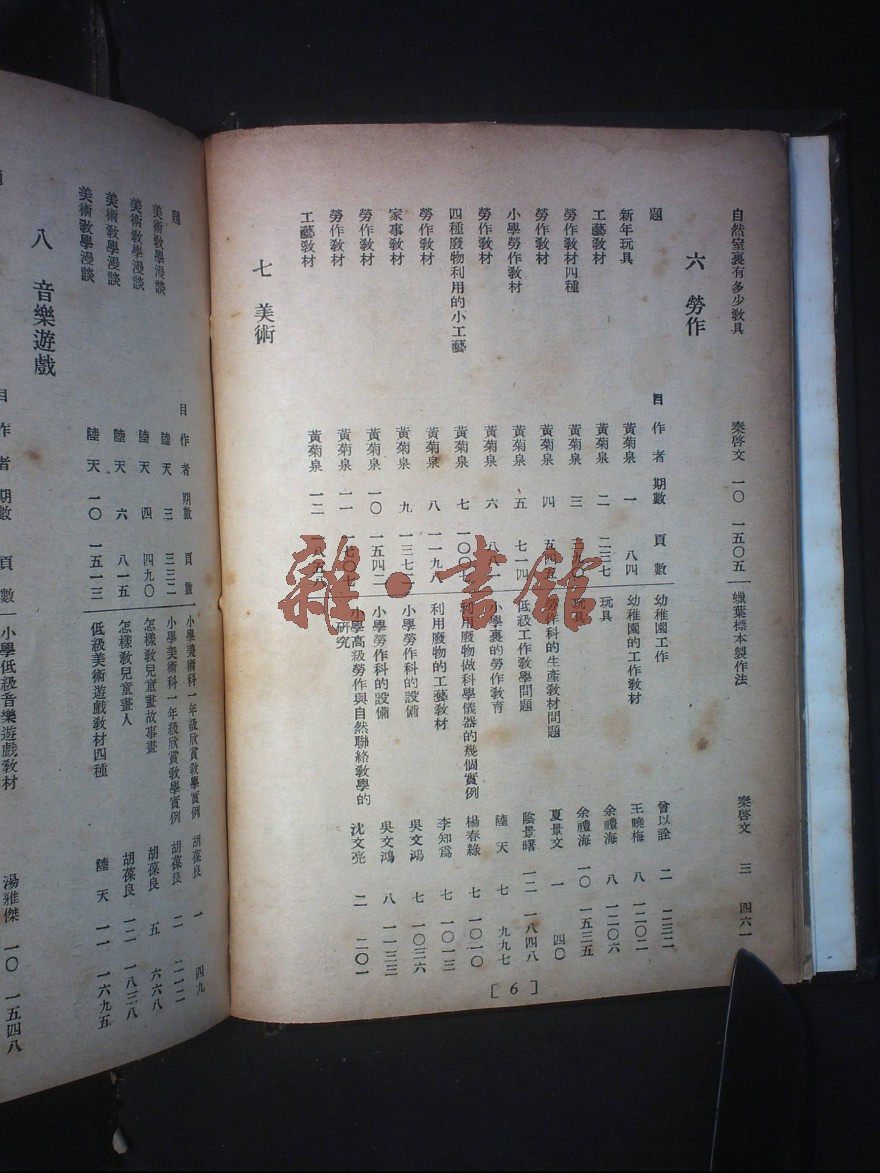 自然室裏有多少教具　秦啓文　一〇　一五〇五
蠟葉標本製作法　秦啓文　三　四六一
六　勞作
題　目　作者　期數　頁數
新年玩具　黃菊泉　一　八四
工藝教材　黃菊泉　二　二三七
勞作教材四種　黃菊泉　三
勞作教材　黃菊泉　四　五四五
小學勞作教材　黃菊泉　五　七一四
勞作教材　黃菊泉　六
四種廢物利用的小工藝　黃菊泉　七
勞作教材　黃菊泉　八　一一九八
家事教材　黃菊泉　九　一三七
勞作教材　黃菊泉　一〇　一五四二
勞作教材　黃菊泉　一一　一七〇七
工藝教材　黃菊泉　一二
幼稚園工作　曾以詮　二　二三二
幼稚園的工作教材　王曉梅　八　一二〇二
玩具　余禮海　八　一二〇六
玩具　余禮海　一〇　一五三五
勞作科的生產教材問題　夏景文　一　四〇
低級工作教學問題　陰景曙　一二　一八四八
小學裏的勞作教育　陸天　七　九九七
利用廢物做科學儀器的幾個實例　楊春綠　七　一〇一〇
利用廢物的工藝教材　李知爲　七　一〇一三
小學勞作科的設備　吳文鴻　七　一〇三六
小學勞作科的設備　吳文鴻　八　一一三三
小學高級勞作與自然聯絡教學的
研究　沈文亮　二　二〇一
七　美術
[6]
雜·書館
題　目　作者　期數　頁數
美術教學漫談　陸天　三　三三二
美術教學漫談　陸天　四　四九〇
美術教學漫談　陸天　六　八一五
美術教學漫談　陸天　一〇　一五一三
小學美術科一年級欣賞教學實例　胡葆良　一　四九
小學美術科一年級欣賞教學實例　胡葆良　二　二一二
怎樣教兒童畫故事畫　胡葆良　五　六六八
怎樣教兒童畫人　胡葆良　一二　一八三八
低級美術遊戲教材四種　陸天　一一　一六九五
八　音樂遊戲
目　作者　期數　頁數
小學低級音樂遊戲教材　湯雅傑　一〇　一五四八